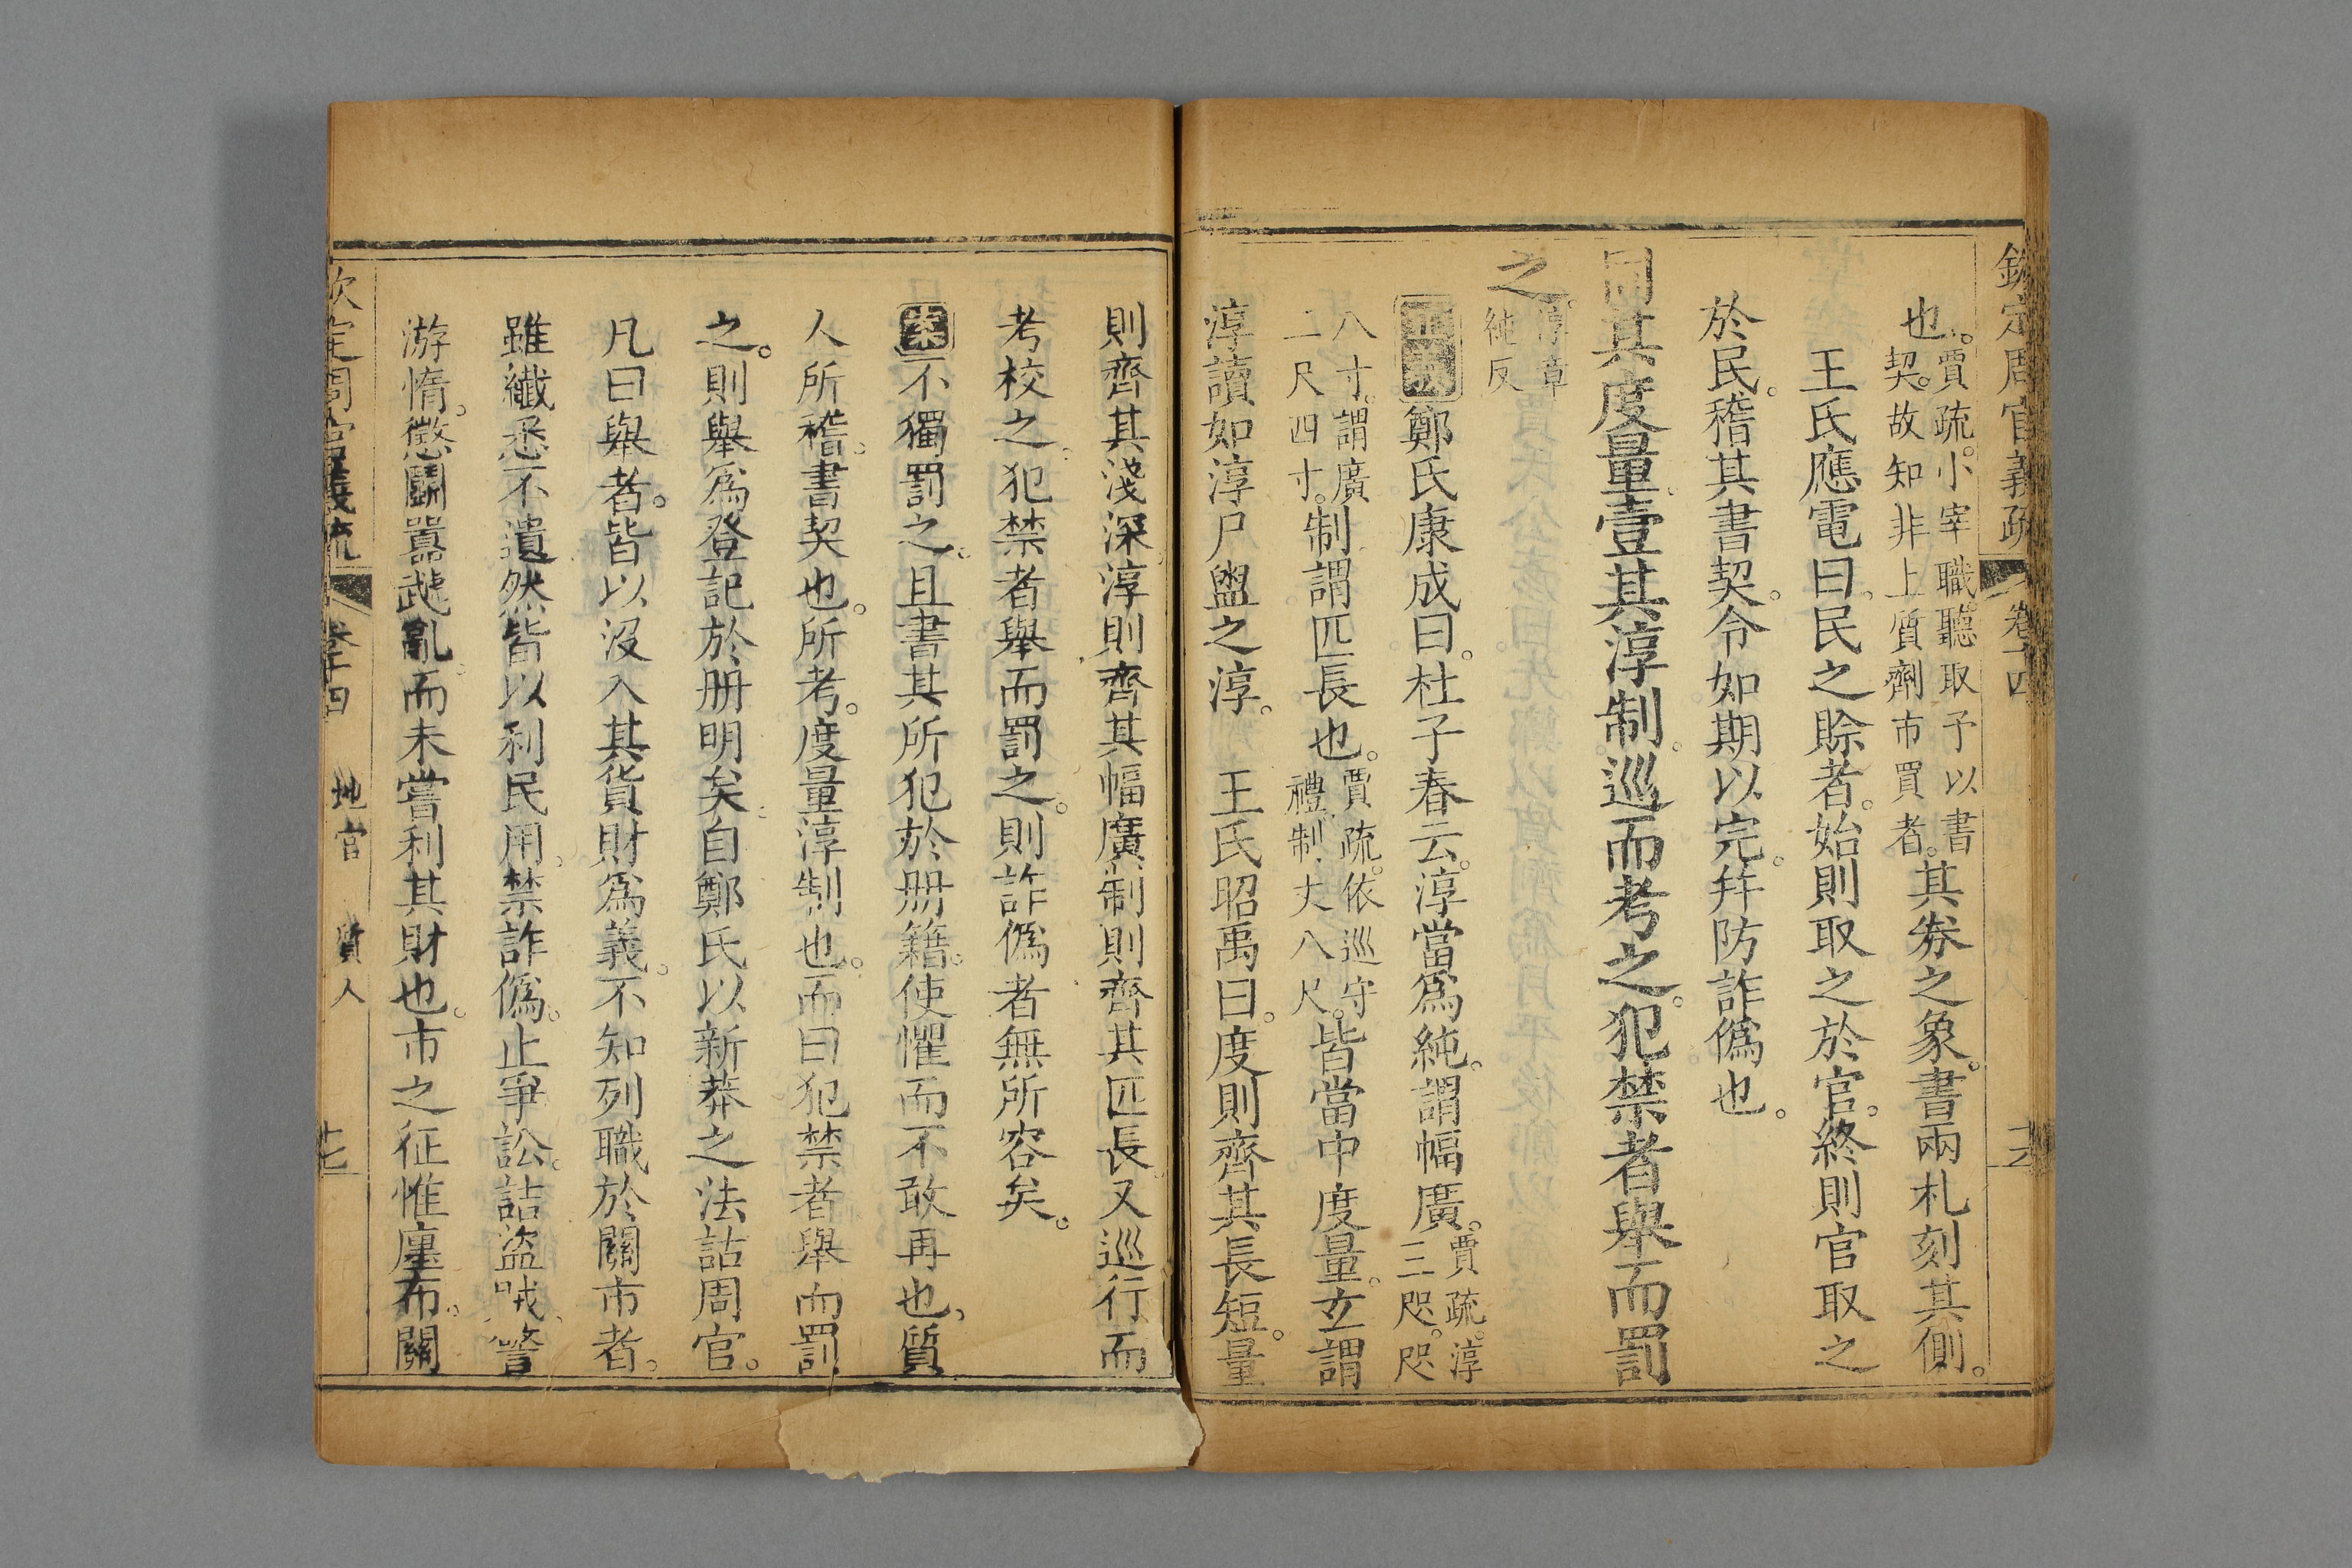 欽定周官義疏 卷十四
也。賈疏。小宰職。聽取予以書契。故知非上質劑市買者。其券之象。書兩札刻其側。
王氏應電曰。民之賒者。始則取之於官。終則官取之
於民。稽其書契。令如期以完。幷防詐僞也。
同其度量。壹其淳制。巡而考之。犯禁者舉而罰
之。淳章純反
正義鄭氏康成曰。杜子春云。淳當爲純。謂幅廣。賈疏。淳三咫。咫
八寸。謂廣二尺四寸。制謂匹長也。賈疏。依巡守禮。制丈八尺。皆當中度量。玄謂
淳讀如淳尸盥之淳。 王氏昭禹曰。度則齊其長短。量
則齊其淺深。淳則齊其幅廣。制則齊其匹長。又巡行而
考校之。犯禁者舉而罰之。則詐僞者無所容矣。
案不獨罰之。且書其所犯於册籍。使懼而不敢再也。質
人所稽。書契也。所考。度量淳制也。而曰犯禁者舉而罰
之。則舉爲登記於册明矣。自鄭氏以新莽之法詁周官。
凡曰舉者。皆以沒入其貨財爲義。不知列職於關市者。
雖纖悉不遺。然皆以利民用。禁詐僞。止爭訟。詰盜賊。警
游惰。懲鬬囂虣亂。而未嘗利其財也。市之征惟廛布。關
欽定周官義疏 卷十四 地官 質人 七